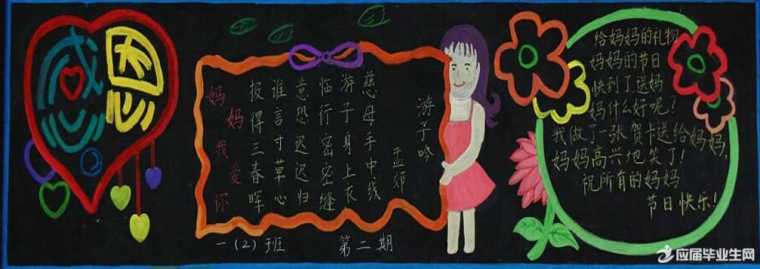 感恩
游子吟
孟郊
慈母手中线
游子身上衣
临行密密缝
意恐迟迟归
谁言寸草心
报得三春晖
妈妈我爱你
一(2)班 第二期
给妈妈的礼物
妈妈的节日
快到了送妈
妈什么好呢!
我做了一张贺卡送给妈妈,
妈妈高兴地笑了!
祝所有的妈妈
节日快乐!
应届毕业生网